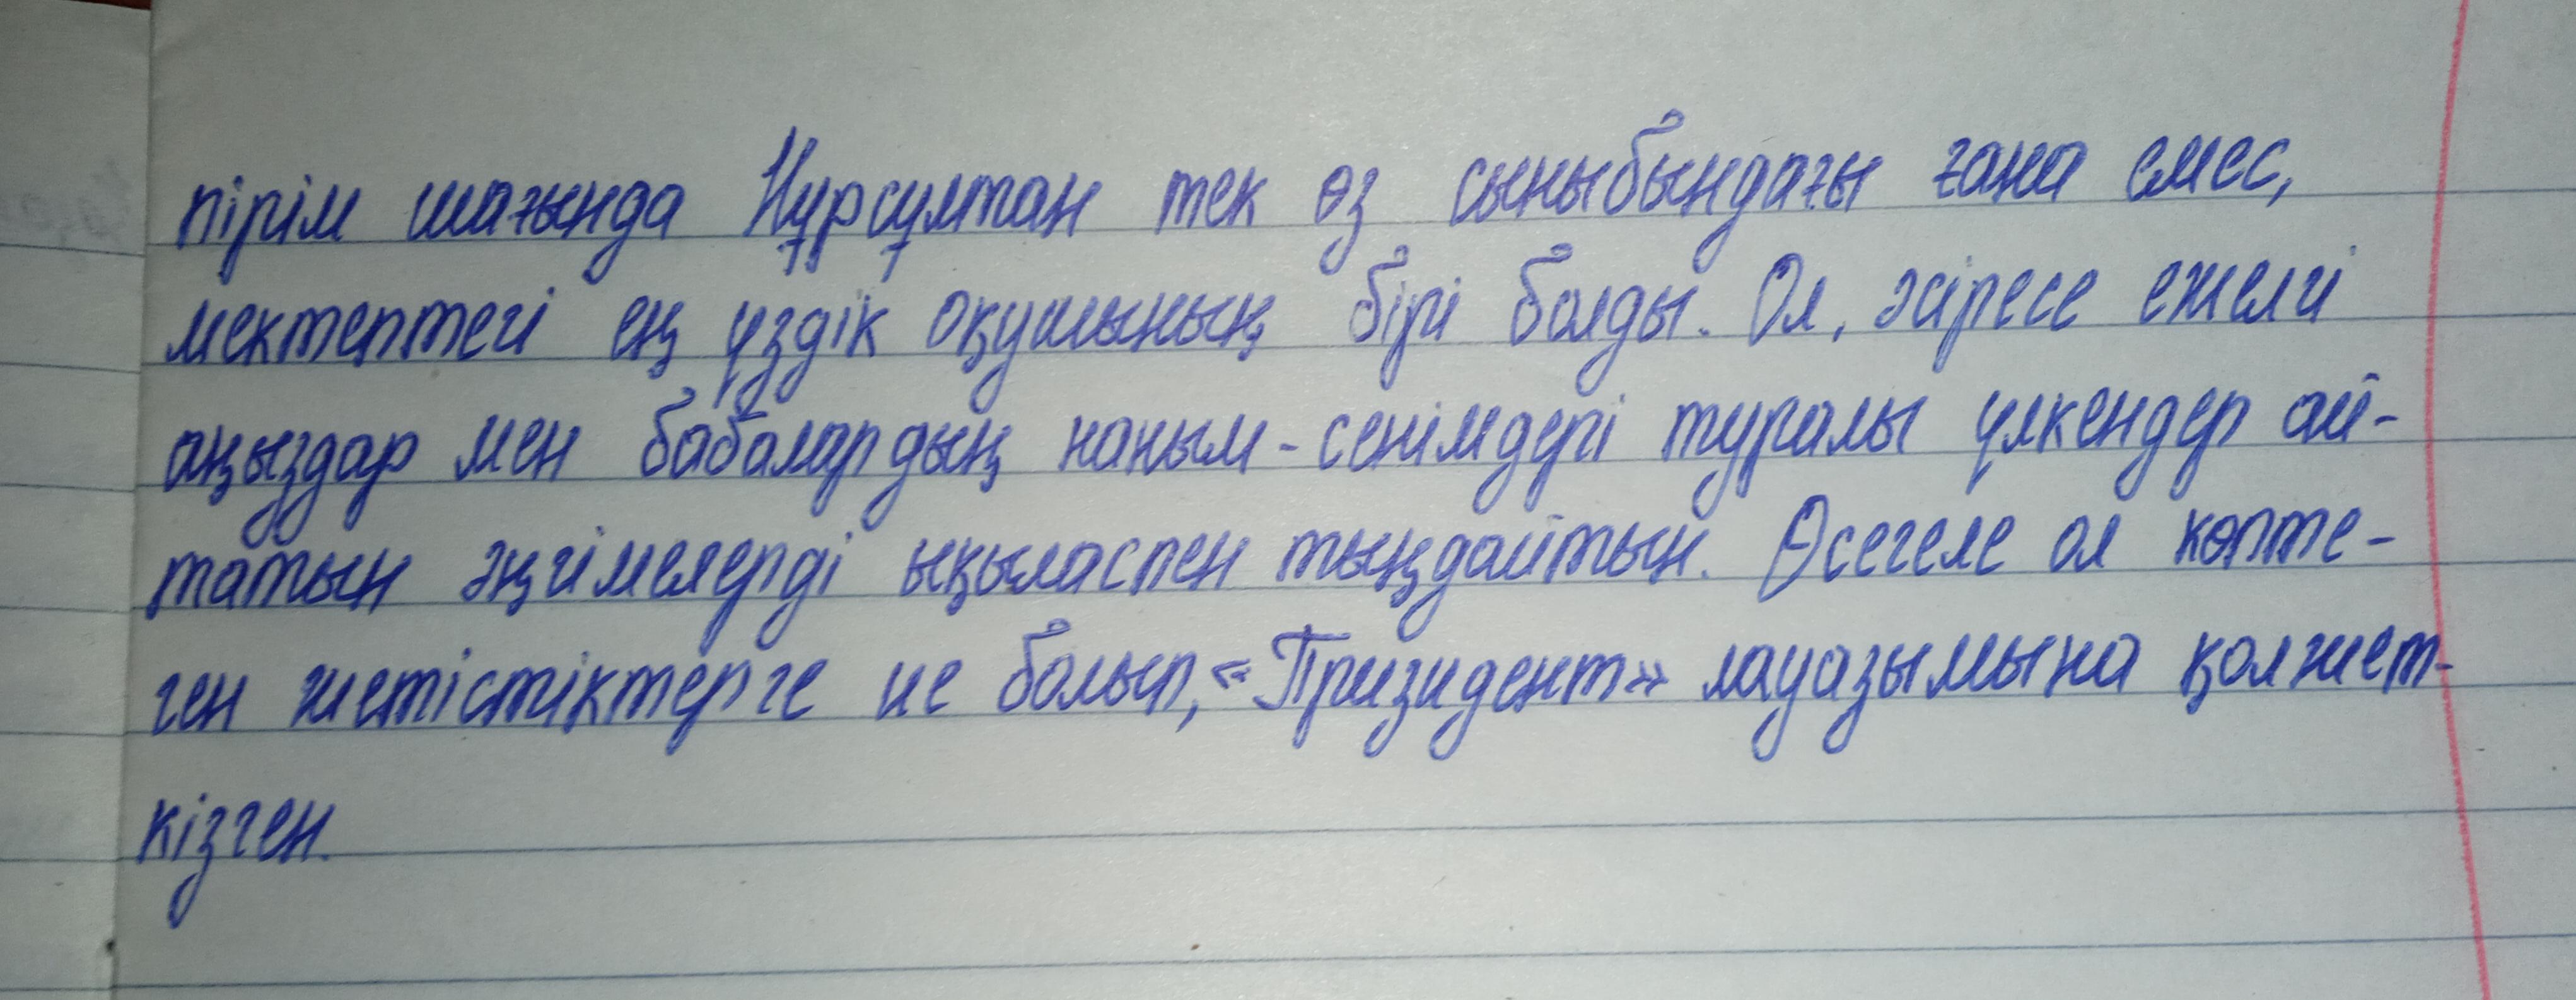 пірім шағында Нұрсұлтан тек өз сыныбындағы ғана емес,
мектептегі ең үздік оқушының бірі болды. Ол, әсіресе ежелгі
аңыздар мен бабалардың наным-сенімдері туралы үлкендер ай-
татын әңгімелерді ықыласпен тыңдайтын. Өсегеле ол көпте-
ген жетістіктерге ие болып, «Призидент» лауазымына қолжет-
кізген.